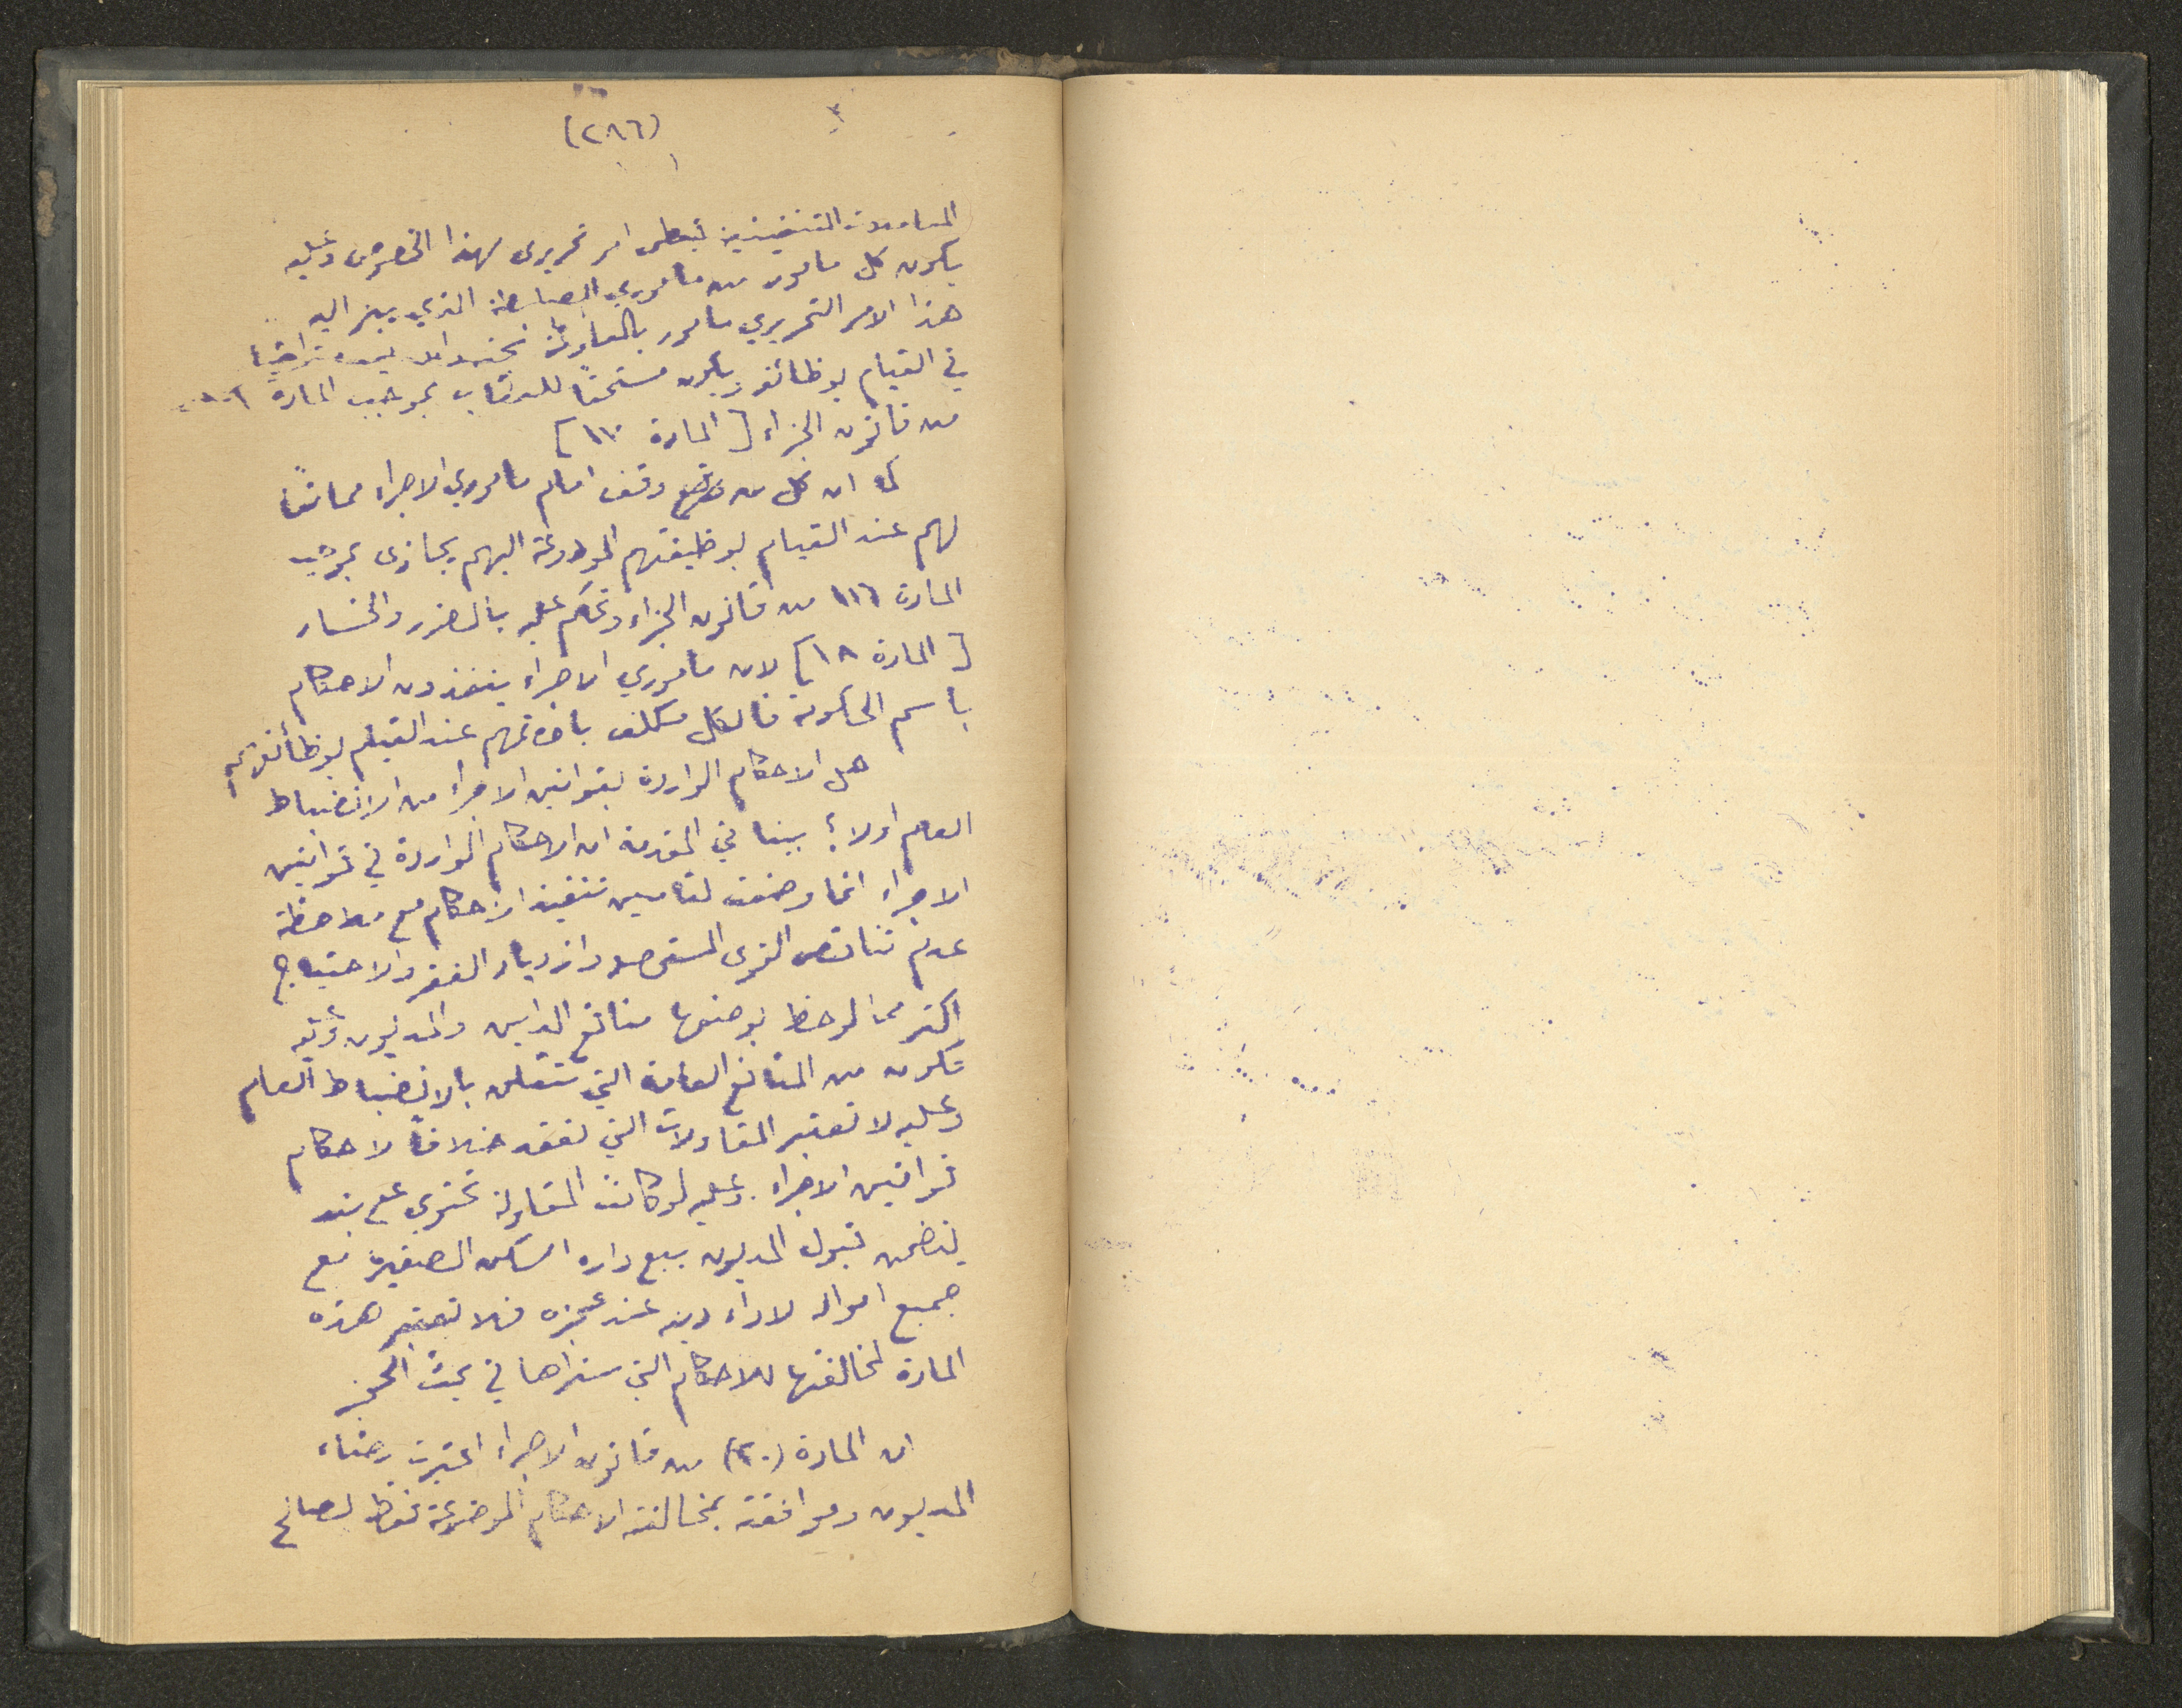 (٢٨٦)
المعاملات التنفيذية يعطى امر تحريرى بهذا الخصوص وعليه
يكون كل مامور من ماموري الضابطة الذي يبرز اليه
هذا الامر التحريري مامور بالمعاونة
في القيام بوظائفه ويكون مستحقاً للعقاب بموجب المادة
من قانون الجزاء [المادة ١٧]
كما ان كل من وقف امام ماموري الاجراء ممانعاً
لهم عند القيام بوظيفتهم المودوعة اليهم يجازى بموجب
المادة ١١٦ من قانون الجزاء ويحكم عليه بالضرر والخسار
[المادة ١٨] لان ماموري الاجراء ينفذون الاحكام
باسم الحكومة فالكل مكلف عند القيام بوظائفهم
هل الاحكام الواردة بقوانين الاجراء من الانضباط
العام اولا؟ بينا في المقدمة ان الاحكام الواردة في قوانين
الاجراء انما وضعت لتامين تنفيذ الاحكام مع ملاحظة
عدم تناقص القوى وازدياد الفقر والاحتياج
اكثر مما لوحظ بوضعها منافع الداين والمديون
تكون من المنافع العامة التي تتعلق بالانضباط العام
وعليه لا تعتبر المقاولات التي تعقد خلافاً لاحكام
قوانين الاجراء. وعليه لو كانت المقاولة تحتوي على بند
يتضمن قبول المديون ببيع داره السكن الصغيرة مع
جميع امواله لاداء دينه عند عجزه فلا تعتبر هذه
المادة لمخالفتها للاحكام التي سنراها في بحث الحجز
ان المادة (٢٠) من قانون الاجراء اعتبرت رضاء
المديون وموافقته بمخالفة الاحكام الموضوعة فقط لصالح